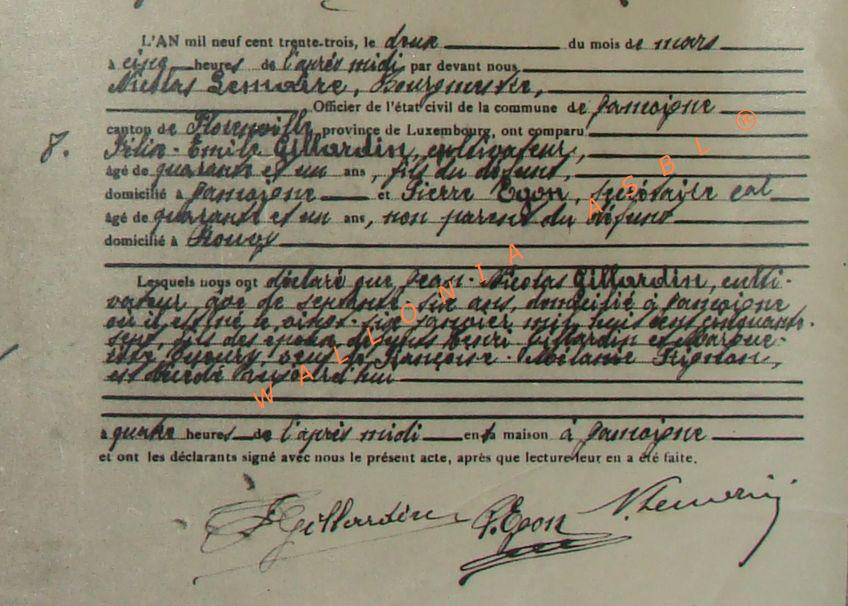 L'AN mil neuf cent trente-trois, le deux du mois de mars
à cinq heures de l'après midi par devant nous
Nicolas Lemaire, Bourgmestre,
Officier de l'état civil de la commune de Jamoigne
canton de Florenville, province de Luxembourg, ont comparu
8. Félix-Emile Gillardin, cultivateur,
âgé de quarante et un ans, fils du défunt,
domicilié à Jamoigne et Pierre Egon, secrétaire cal
âgé de quarante et un ans, non parent du défunt
domicilié à
Lesquels nous ont déclaré que Jean-Nicolas Gillardin, culti-
vateur, âgé de septante-six ans, domicilié à Jamoigne
où il est né le vingt-six janvier mil huit cent cinquante-
sept, fils des époux défunts Henri Gillardin et Margue-
rite veuf de Françoise-Mélanie
est décédé aujourd'hui
à quatre heures de l'après midi en sa maison à Jamoigne
et ont les déclarants signé avec nous le présent acte, après que lecture leur en a été faite.
F Gillardin P. Egon N. Lemaire
WALLONIA ASBL ®